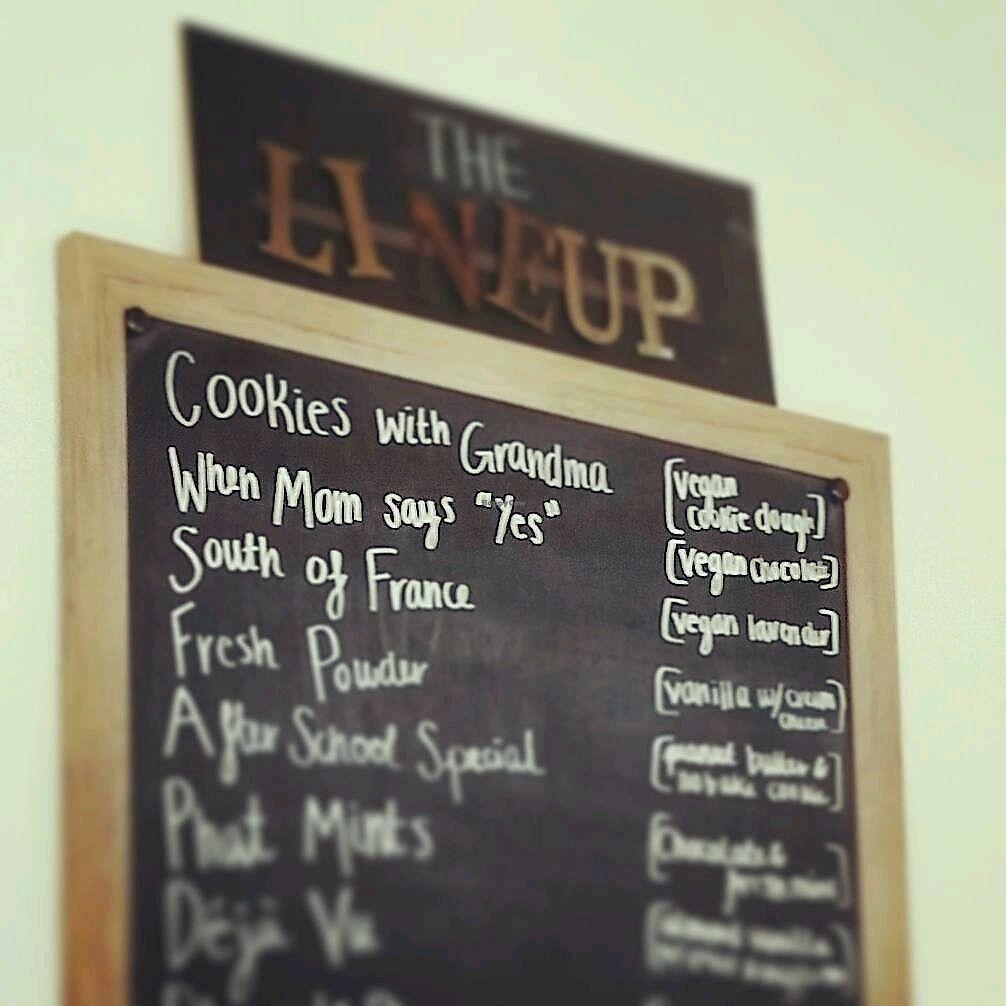 THE
LINEUP
Cookies with Grandma [vegan
cookie dough]
When Mom says "Yes" [vegan chocolate]
South of France [vegan lavender]
Fresh Powder [vanilla w/cream
cheese]
After School Special [peanut butter &
no bake cookie]
Phat Mints [Chocolate &
Déjà Vu [almond vanilla